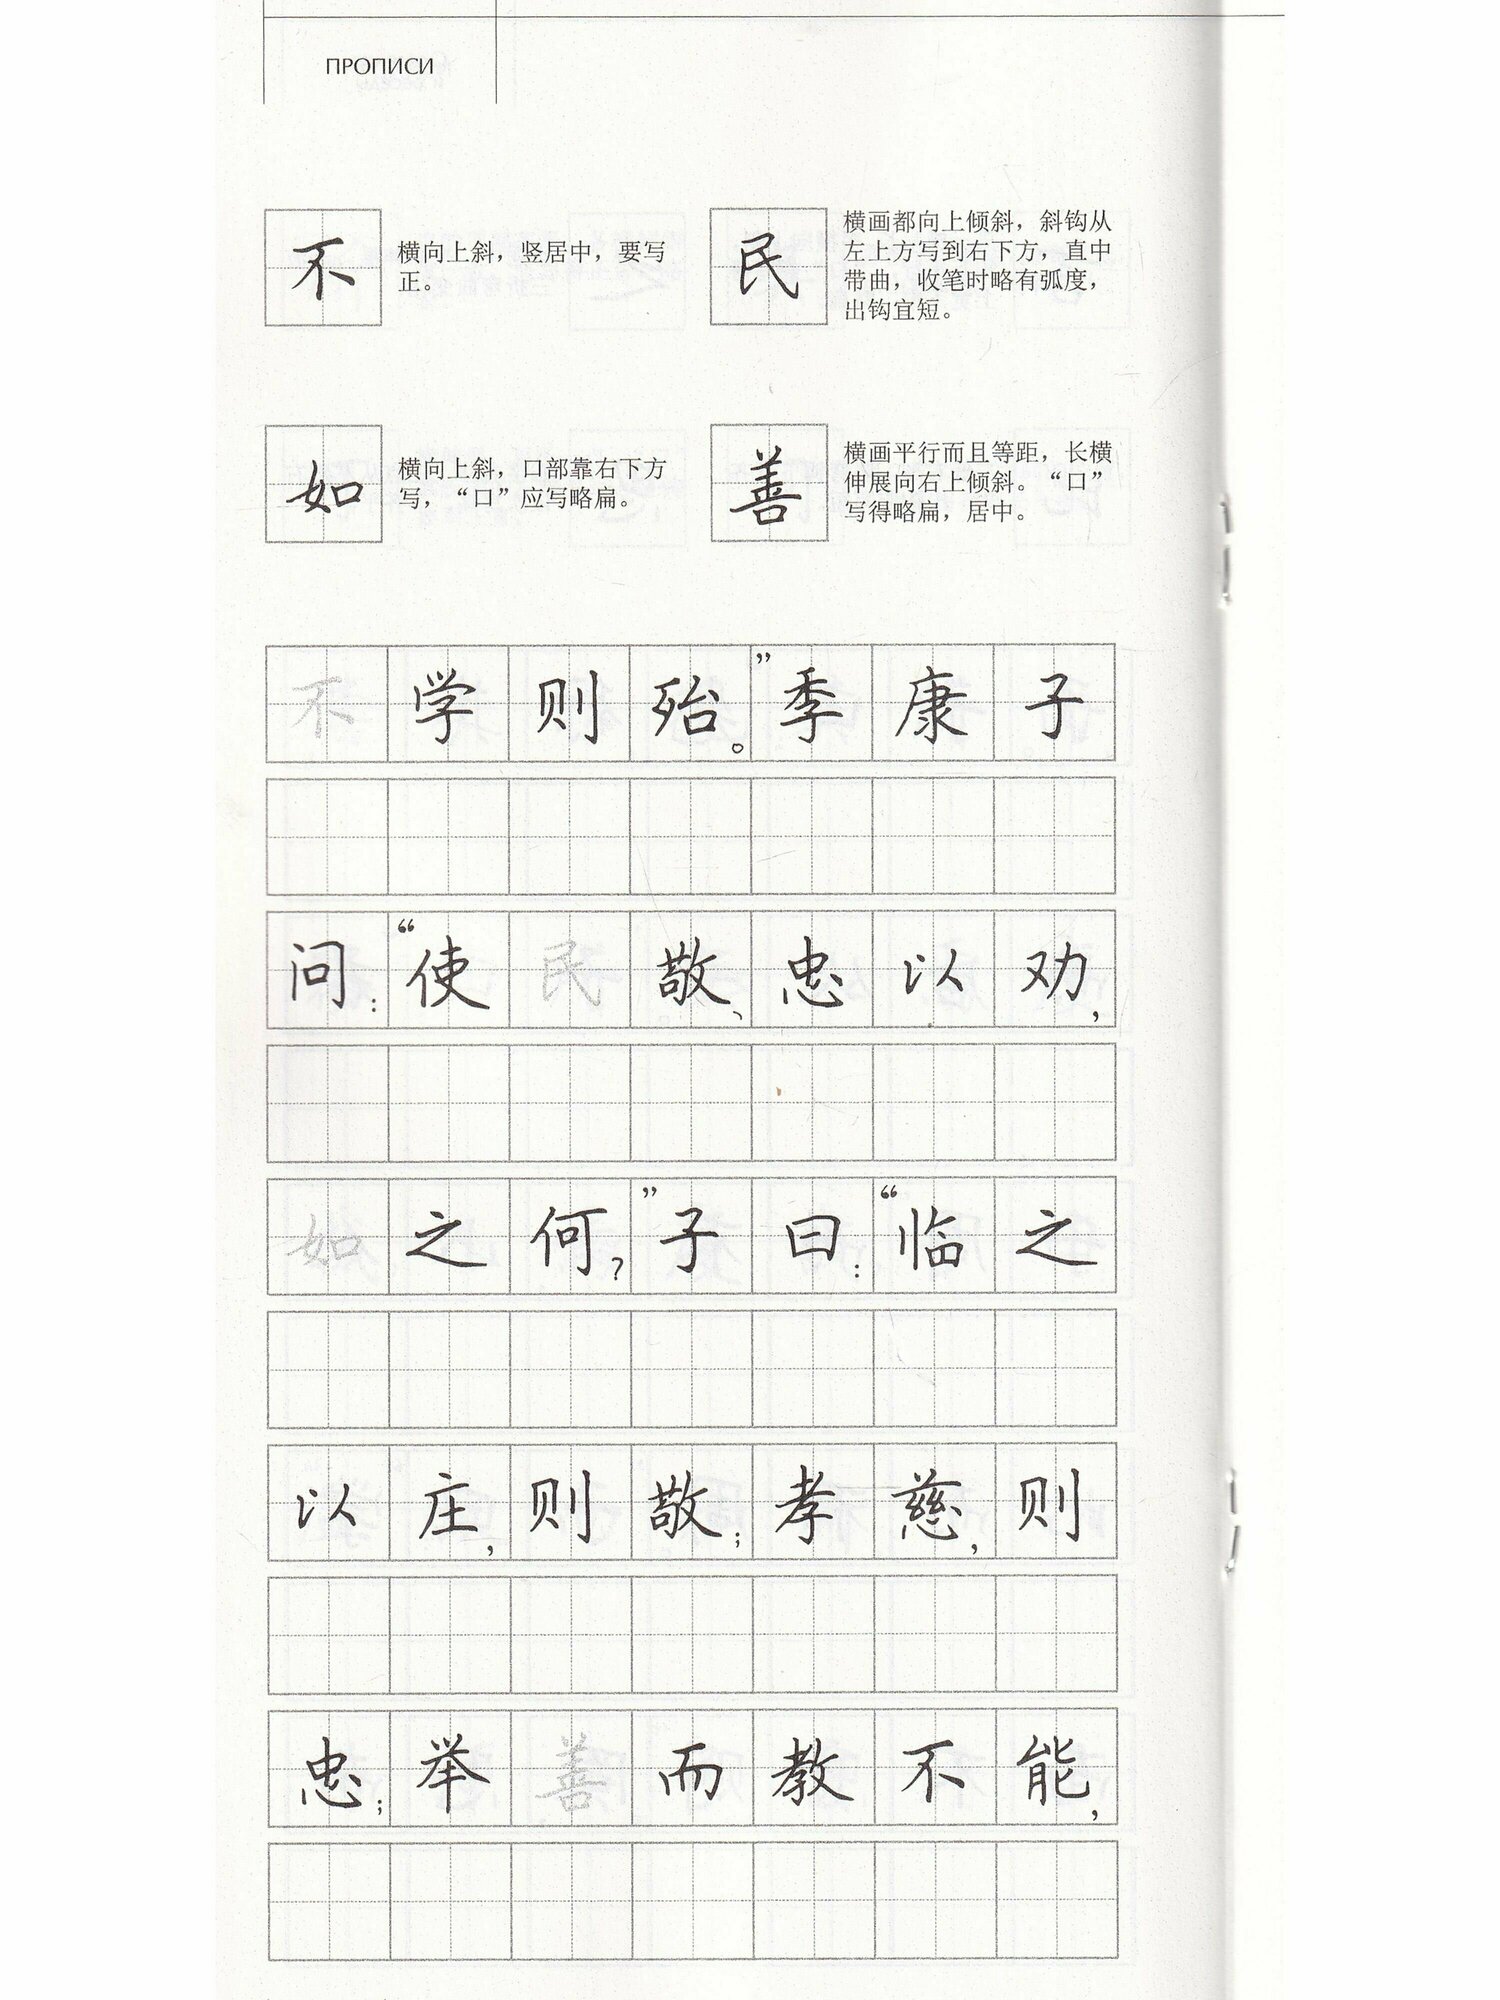 ПРОПИСИ
不
横向上斜，竖居中，要写
正。
民
横画都向上倾斜，斜钩从
左上方写到右下方，直中
带曲，收笔时略有弧度，
出钩宜短。
如
横向上斜，口部靠右下方
写，“口”应写略扁。
善
横画平行而且等距，长横
伸展向右上倾斜。“口”
写得略扁，居中。
不学则殆。”季康子
问：“使民敬、忠以劝，
如之何？”子曰：“临之
以庄，则敬；孝慈，则
忠；举善而教不能，